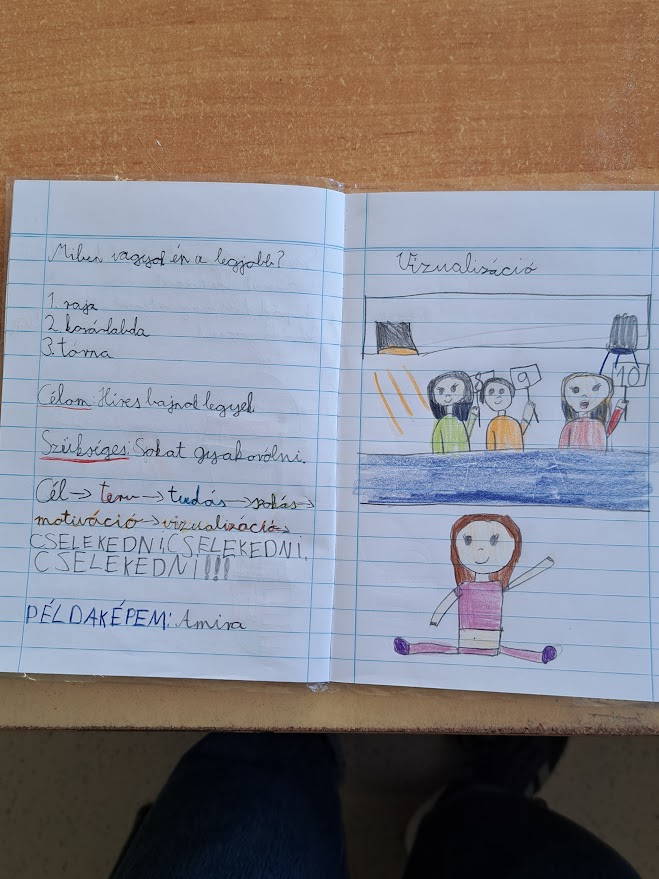 Miben vagyok én a legjobb?
1. rajz
2. kosárlabda
3. torna
Célom: Híres bajnok legyek
Szükséges: Sokat gyakorolni.
Cél → terv → tudás → szokás →
motiváció → vizualizáció →
CSELEKEDNI, CSELEKEDNI,
CSELEKEDNI!!!
PÉLDAKÉPEM: Amira
Vizualizáció
9
10